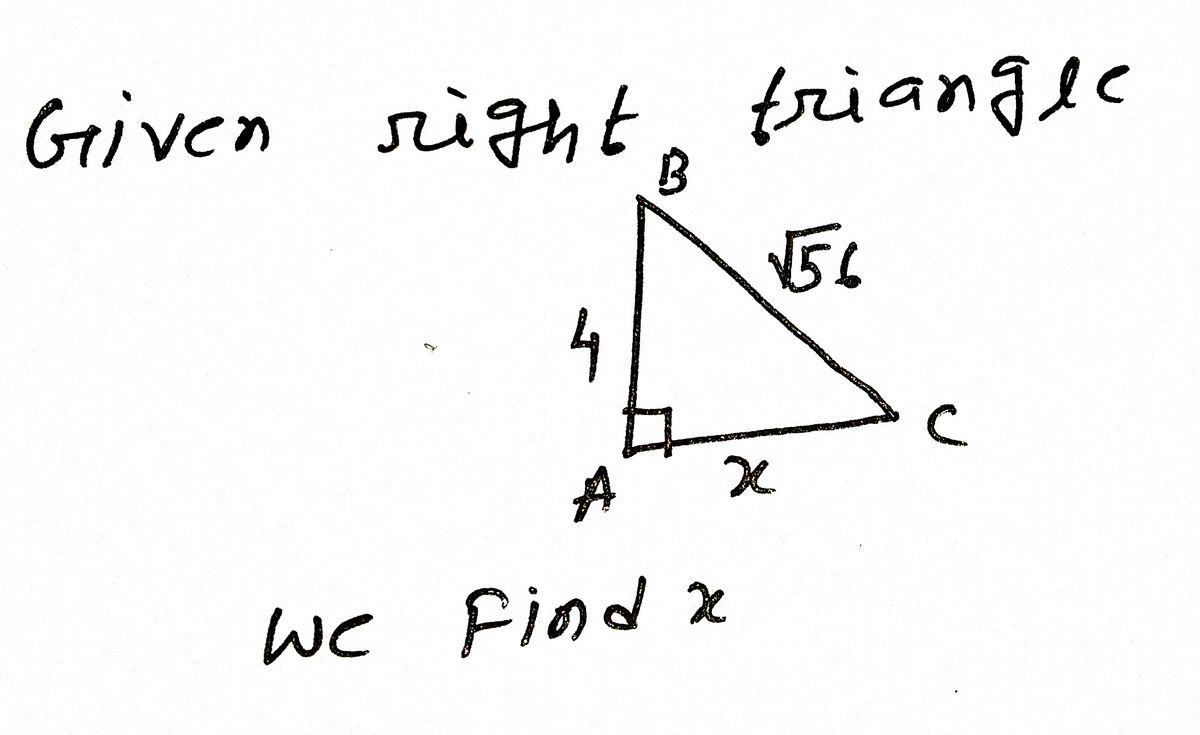 Given right triangle
B
√56
4
C
A
x
We Find x